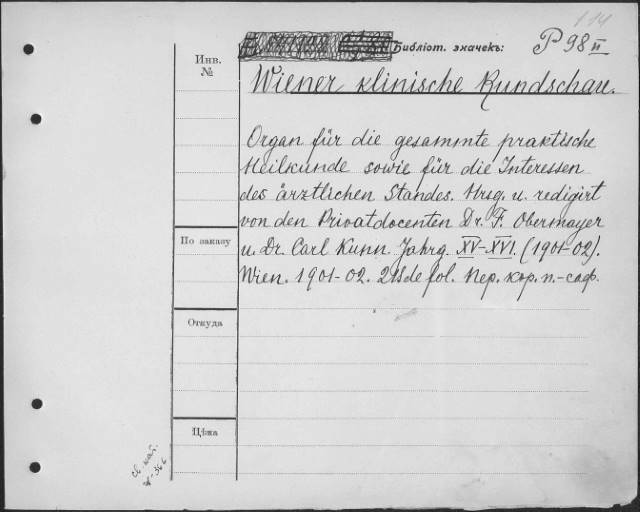 114
Библіот. значекъ: P 98 II
Инв. №
Wiener klinische Rundschau.
Organ für die gesammte praktische
Heilkunde sowie für die Interessen
des ärztlichen Standes. Hrsg. u. redigirt
von den Privatdocenten Dr. F. Obermayer
u. Dr. Carl Kunn. Jahrg. XV-XVI. (1901-02).
Wien. 1901-02. 2 Bde fol. Пер. кор. п.-саф.
По заказу
Откуда
Цѣна